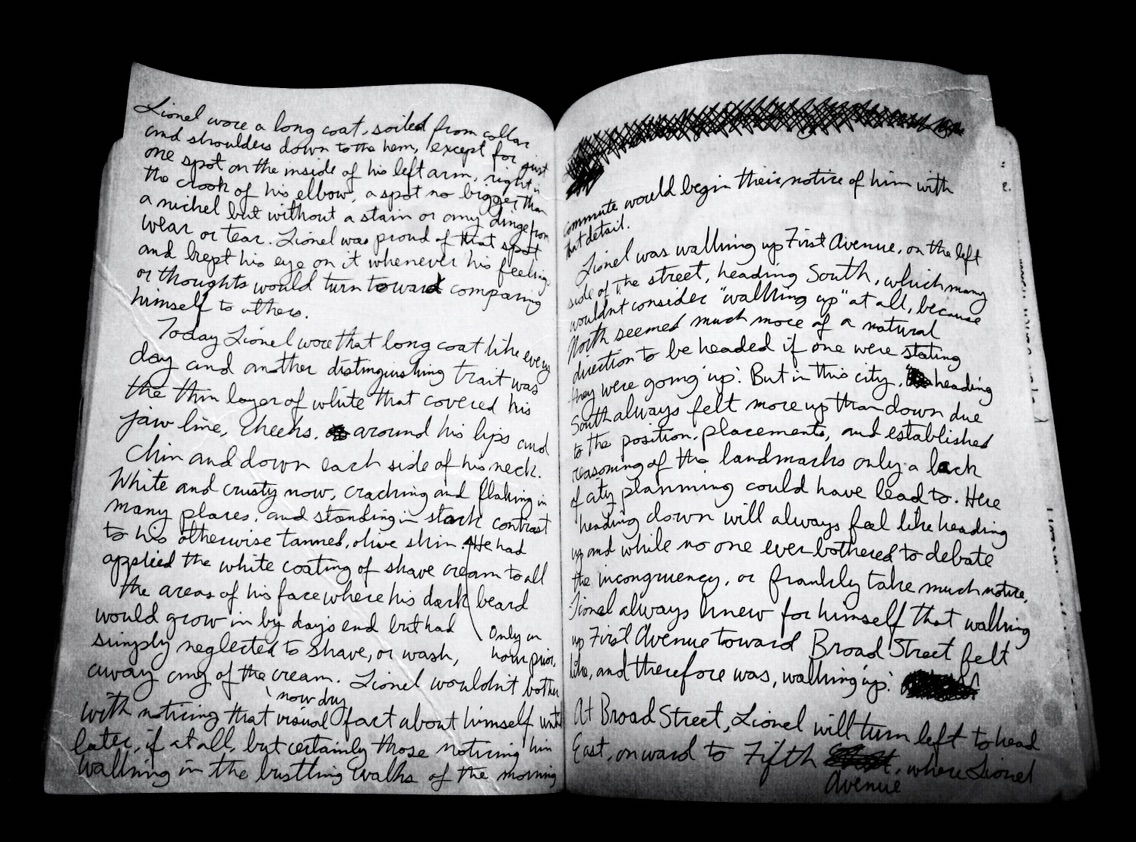 Lionel wore a long coat, soiled from collar
and shoulders down to the hem, except for just
one spot on the inside of his left arm, right in
the crook of his elbow, a spot no bigger than
a nickel but without a stain or any dinge from
wear or tear. Lionel was proud of that spot
and kept his eye on it whenever his feelings
or thoughts would turn toward comparing
himself to others.
Today Lionel wore that long coat like every
day and another distinguishing trait was
the thin layer of white that covered his
jaw line, cheeks, around his lips and
chin and down each side of his neck.
White and crusty now, cracking and flaking in
many places, and standing in stark contrast
to his otherwise tanned, olive skin. He had
applied the white coating of shave cream to all
the areas of his face where his dark beard
would grow in by day's end but had
Only an
simply neglected to shave, or wash,
hour prior,
away any of the cream. Lionel wouldn't bother
now dry
with noticing that visual fact about himself until
later, if at all, but certainly those noticing him
walking in the bustling walks of the morning
commute would begin their notice of him with
that detail.
Lionel was walking up First Avenue, on the left
side of the street, heading South, which many
wouldn't consider "walking up" at all, because
North seemed much more of a natural
direction to be headed if one were stating
they were going 'up'. But in this city, heading
South always felt more up than down due
to the position, placements, and established
reasoning of the landmarks only a lack
of city planning could have lead to. Here
heading down will always feel like heading
up and while no one ever bothered to debate
the incongruency, or frankly take much notice,
Lionel always knew for himself that walking
up First Avenue toward Broad Street felt
like, and therefore was, walking 'up'.
At Broad Street, Lionel will turn left to head
East, onward to Fifth , where Lionel
Avenue